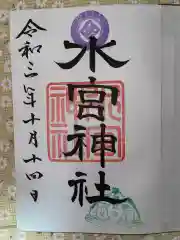 水宮神社
令和三年十月十四日